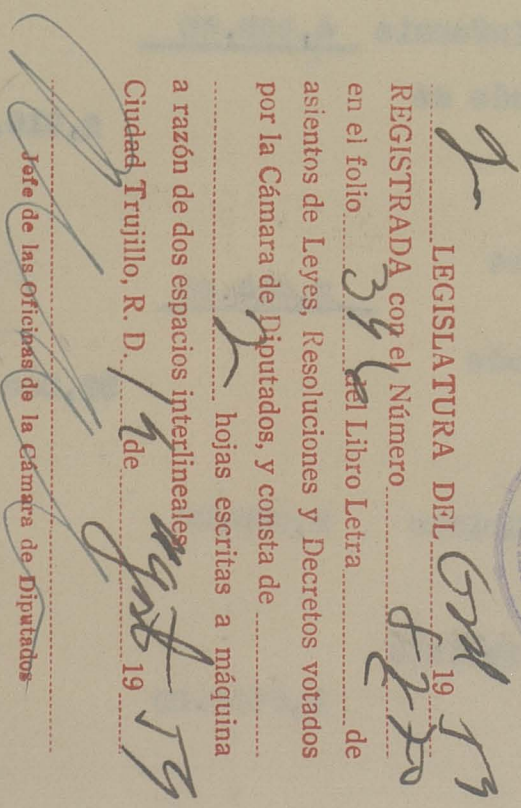 2a LEGISLATURA DEL Ord 19 53
REGISTRADA con el Número
en el folio 396 del Libro Letra de
asientos de Leyes, Resoluciones y Decretos votados
por la Cámara de Diputados, y consta de
2 hojas escritas a máquina
a razón de dos espacios interlineales
Ciudad Trujillo, R. D. 19 de agosto 19
Jefe de las Oficinas de la Cámara de Diputados